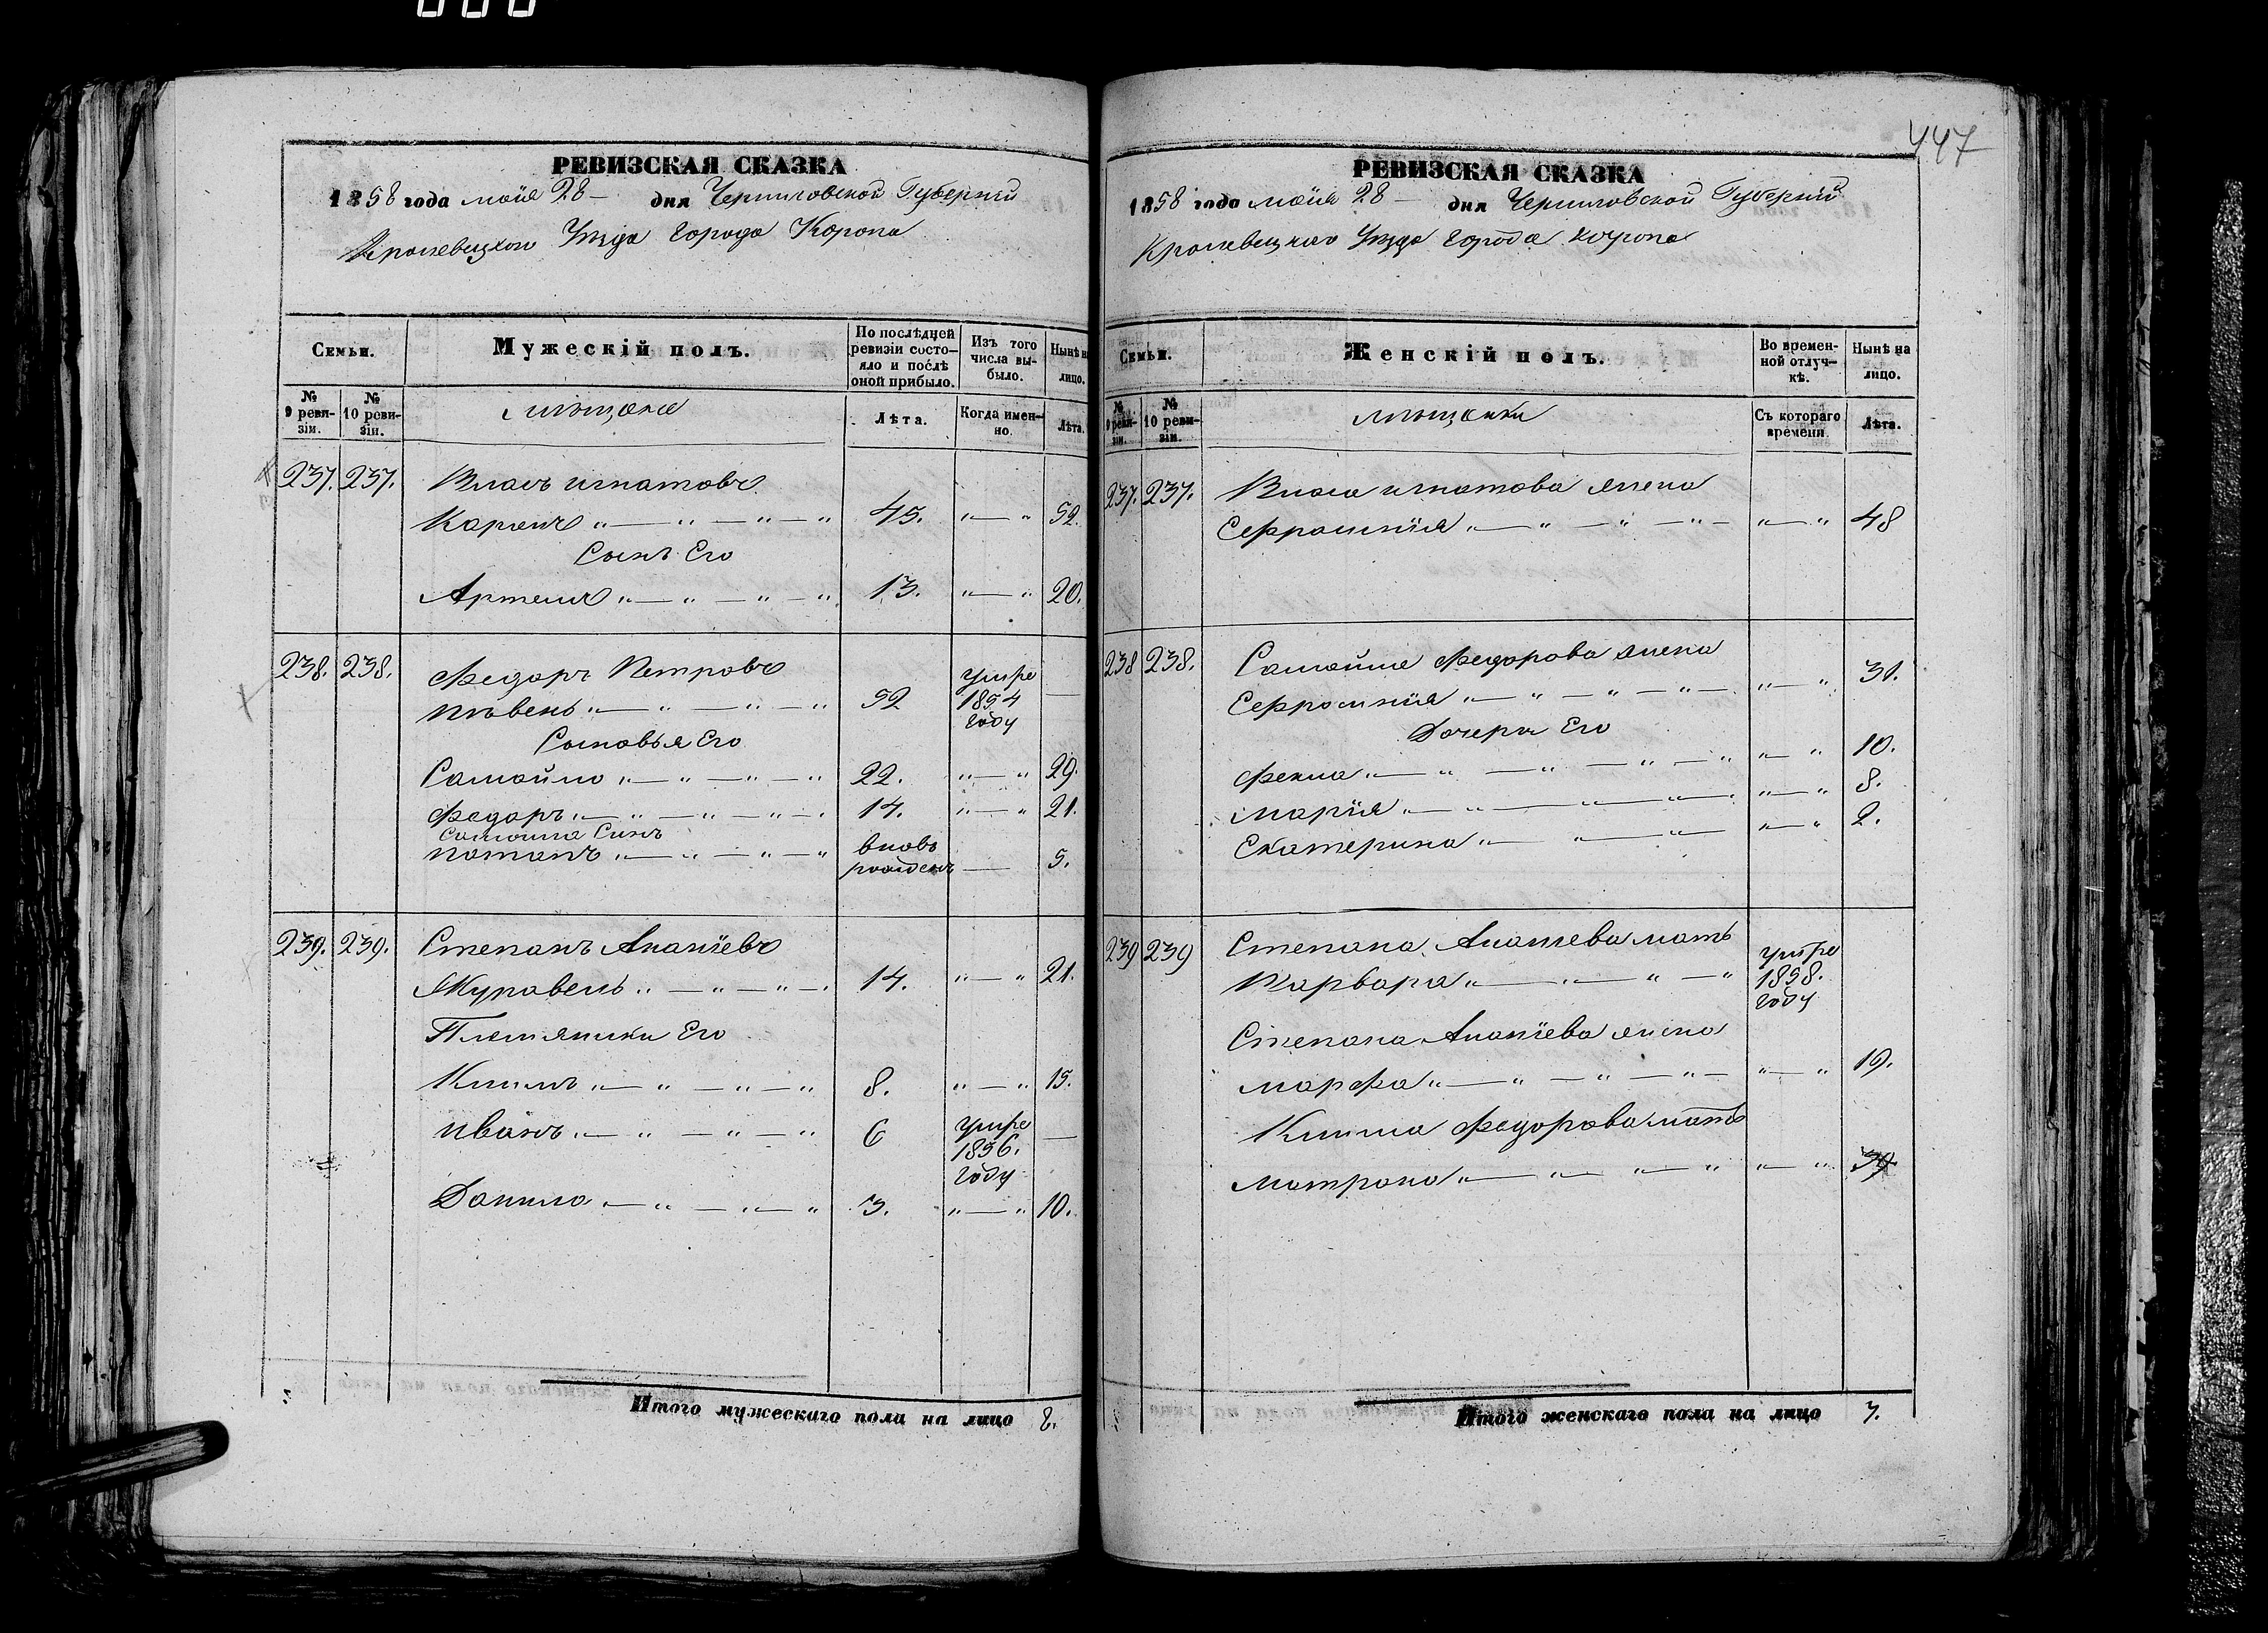 447
РЕВИЗСКАЯ СКАЗКА
1858 года мая 28 — дня Черниговской Губерніи
Кролевецкого Уезда Города Коропа
Семьи.
Мужескій полъ.
По послѣдней ревизіи состояло и послѣ оной прибыло.
Изъ того числа выбыло.
Нынѣ на лицо.
№ 9 ревизіи.
№ 10 ревизіи.
мѣщане
Лѣта.
Когда именно.
Лѣта.
237. 237. Власъ игнатовъ
45. „ — „ 52
Сынъ Его
Артемъ „ — „ — „ — „ 13. „ — „ 20.
238. 238. Федоръ Петровъ
пѣвень „ — „ — „ — „ 52 умре 1854 году —
Сыновья Его
Самойло „ — „ — „ — „ 22. „ — „ 29.
Федоръ „ — „ — „ — „ 14. „ — „ 21.
Самойла Сынъ
потапъ „ — „ — „ — „ вновь рожденъ — 5.
239. 239. Степанъ Ананіевъ
Журавель „ — „ — „ — „ 14. „ — „ 21.
Племяники Его
Климъ „ — „ — „ — „ 8. „ — „ 15.
иванъ „ — „ — „ — „ 6 умре 1856. году —
Данило „ — „ — „ — „ 3. „ — „ 10.
Итого мужескаго пола на лицо 8.
РЕВИЗСКАЯ СКАЗКА
1858 года мая 28 — дня Черниговской Губерніи
Кролевецкаго Уезда Города Коропа
Семьи.
Женскій полъ.
Во временной отлучкѣ.
Нынѣ на лицо.
№ 9 ревизіи.
№ 10 ревизіи.
мѣщанки
Съ котораго времени.
Лѣта.
237. 237. Власа игнатова жена
Ефросинія „ — „ — „ — „ — „ — „ 48
238 238. Самойла Федорова жена
Ефросинія „ — „ — „ — „ — „ — „ 31.
Дочери Его
Фекла „ — „ — „ — „ — „ „ — „ 10.
Марія „ — „ — „ — „ „ — „ 8.
Екатерина „ — „ — „ — „ — „ 2.
239 239 Степана Ананіева мать
Варвара „ — „ — „ — „ умре 1858. году
Степана Ананіева жена
марфа „ — „ — „ — „ — „ — „ 19.
Клима Федорова мать
матрона „ — „ — „ — „ „ — „ 39
Итого женскаго пола на лицо 7.